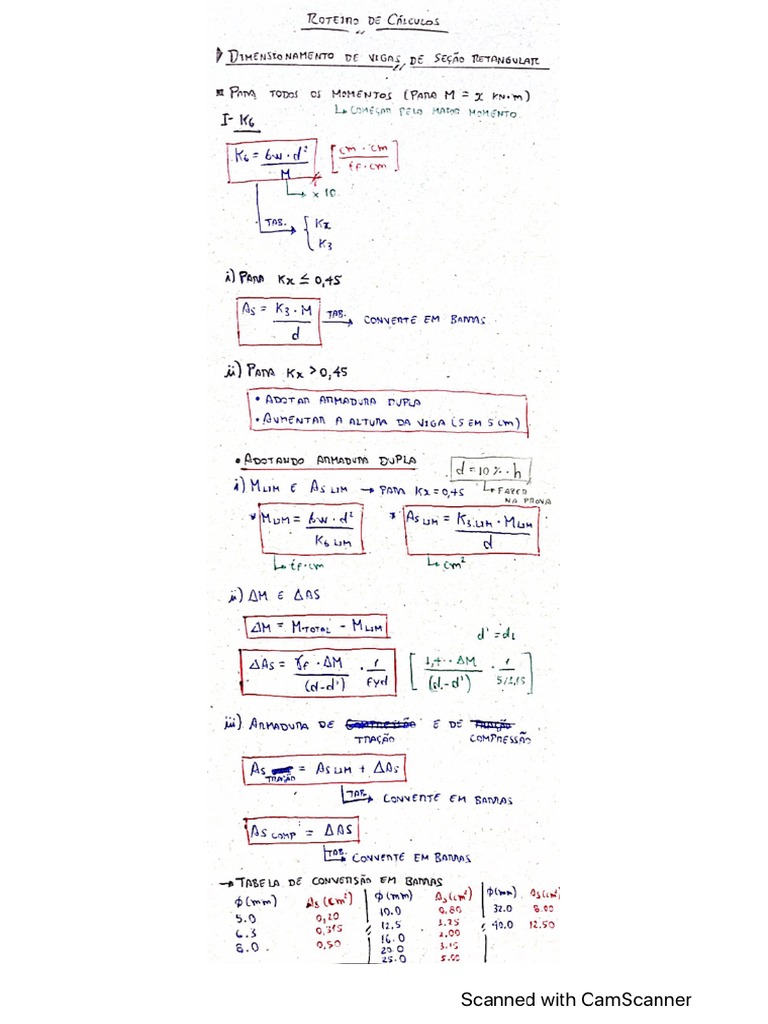 ROTEIRO DE CÁLCULOS
DIMENSIONAMENTO DE VIGAS DE SEÇÃO RETANGULAR
PARA TODOS OS MOMENTOS (PARA M = x KN.m)
↳ COMEÇAR PELO MAIOR MOMENTO.
I- K6
K6 = bw · d² / M [cm · cm² / tf · cm]
↳ x 10.
TAB. → { Kx
K3
i) PARA Kx ≤ 0,45
As = K3 · M / d TAB. → CONVERTE EM BARRAS
ii) PARA Kx > 0,45
• ADOTAR ARMADURA DUPLA
• AUMENTAR A ALTURA DA VIGA (5 EM 5 cm)
• ADOTANDO ARMADURA DUPLA
d = 10 % · h
↳ FAZER NA PROVA
i) MLIM E AS LIM → PARA Kx = 0,45
* MLIM = bw · d² / K6 LIM * AS LIM = K3 LIM · MLIM / d
↳ tf · cm ↳ cm²
ii) ΔM E ΔAS
ΔM = MTOTAL - MLIM
d' = d1
ΔAs = γf · ΔM / (d-d') · 1 / fyd [1,4 · ΔM / (d-d') · 1 / 5/1,15]
iii) ARMADURA DE TRAÇÃO E DE COMPRESSÃO
As TRAÇÃO = AS LIM + ΔAs
TAB. → CONVERTE EM BARRAS
As COMP = ΔAS
TAB. → CONVERTE EM BARRAS
→ TABELA DE CONVERSÃO EM BARRAS
φ(mm) As (cm²) φ(mm) As(cm²) φ(mm) As(cm²)
5.0 0,20 10.0 0,80 32.0 8.00
6.3 0,315 12.5 1.25 40.0 12.50
8.0 0,50 16.0 2.00
20.0 3.15
25.0 5.00
Scanned with CamScanner